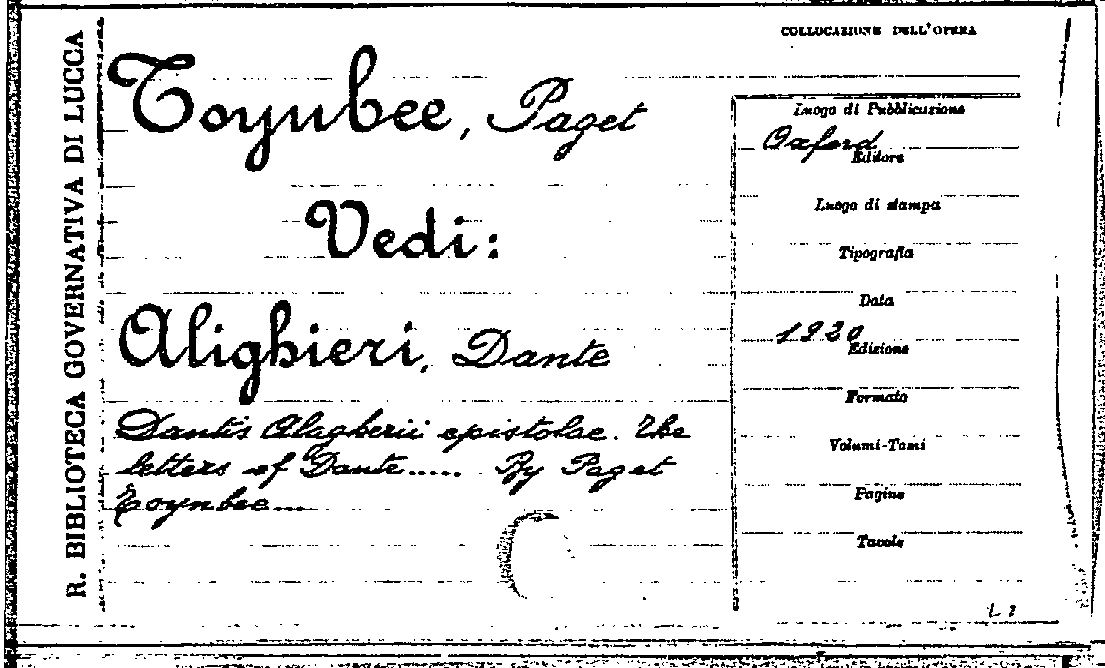 R. BIBLIOTECA GOVERNATIVA DI LUCCA
COLLOCAZIONE DELL'OPERA
Toynbee, Paget
Vedi:
Alighieri, Dante
Dantis Alagherii epistolae. The
letters of Dante..... By Paget
Toynbee...
Luogo di Pubblicazione
Oxford
Editore
Luogo di stampa
Tipografia
Data
1920
Edizione
Formato
Volumi-Tomi
Pagine
Tavole